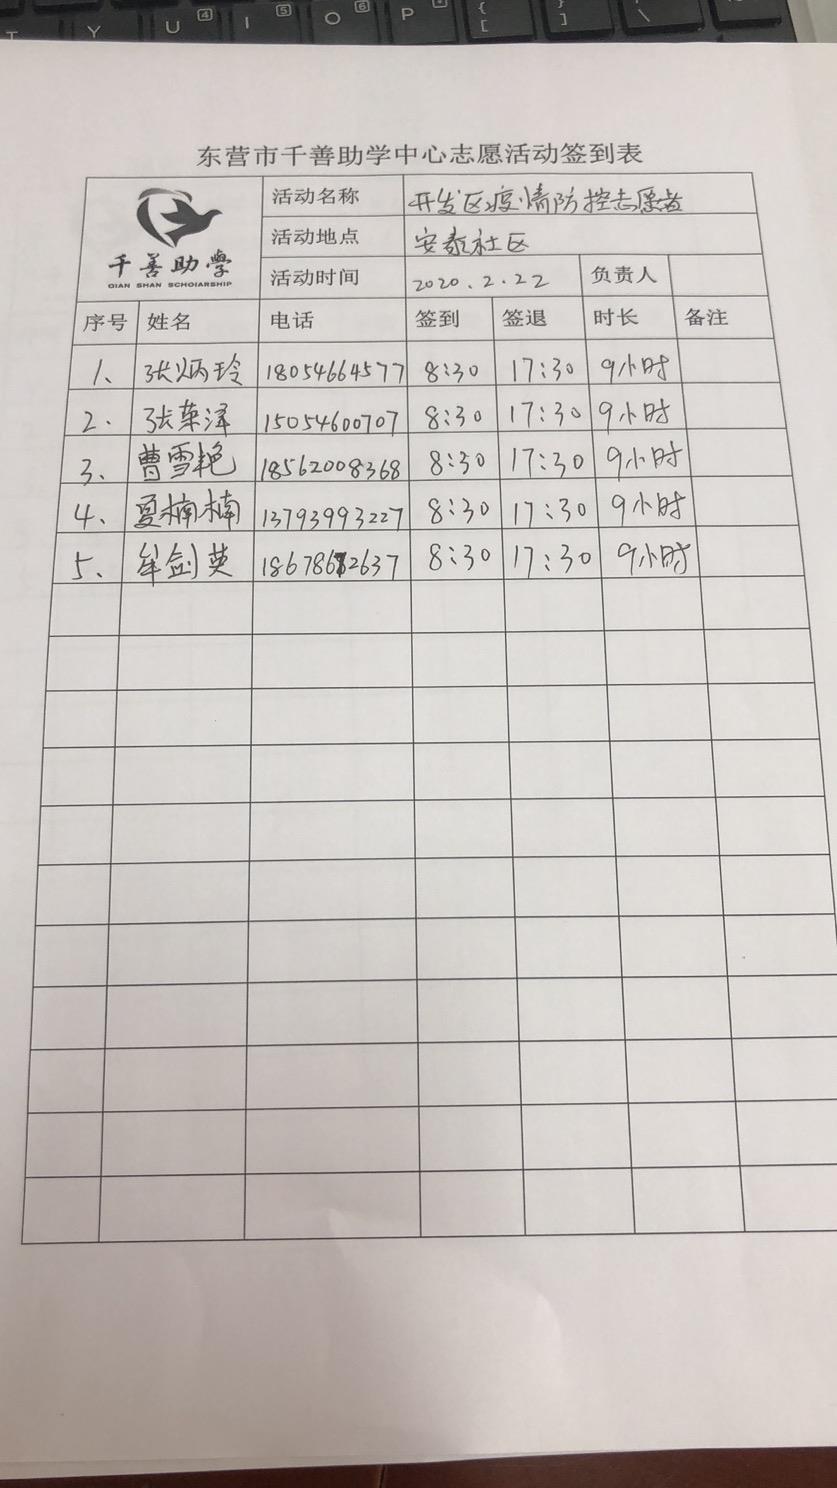 T Y U 4 I 5 O 6 P { [ } ] | \
东营市千善助学中心志愿活动签到表
千善助学
QIAN SHAN SCHOIARSHIP
活动名称 开发区疫情防控志愿者
活动地点 安泰社区
活动时间 2020.2.22 负责人
序号 姓名 电话 签到 签退 时长 备注
1、 张炳玲 18054664577 8:30 17:30 9小时
2. 张荣泽 15054600707 8:30 17:30 9小时
3、 曹雪艳 18562008368 8:30 17:30 9小时
4、 夏楠楠 13793993227 8:30 17:30 9小时
5、 牟剑英 8:30 17:30 9小时